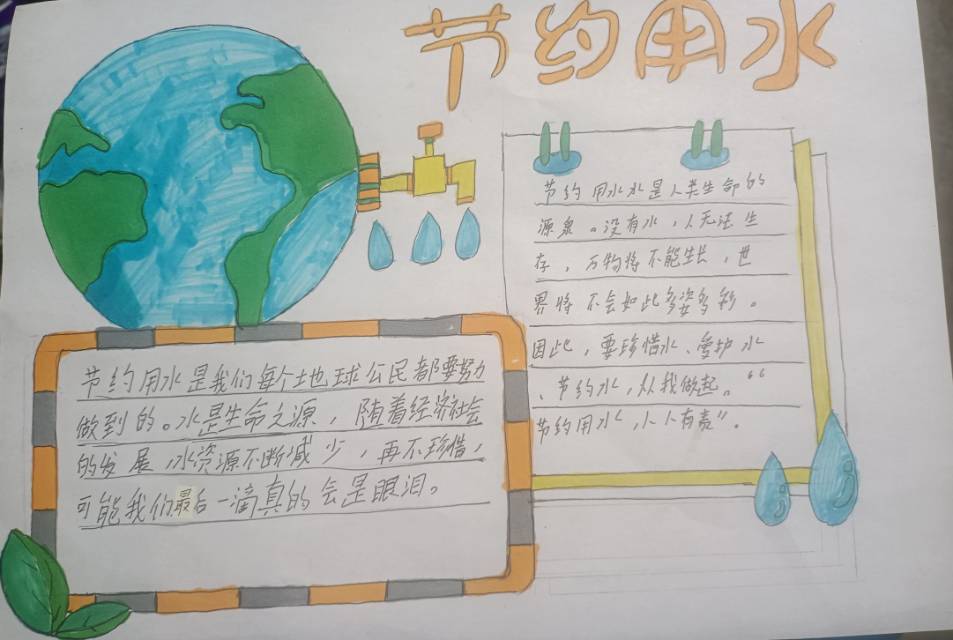 节约用水
节约用水水是人类生命的
源泉。没有水，人无法生
存，万物将不能生长，世
界将不会如此多姿多彩。
因此，要珍惜水、爱护水
、节约水，从我做起。“
节约用水，人人有责”。
节约用水是我们每个地球公民都要努力
做到的。水是生命之源，随着经济社会
的发展，水资源不断减少，再不珍惜，
可能我们最后一滴真的会是眼泪。